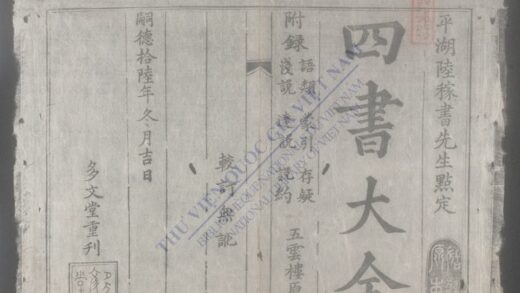 平湖陸稼書先生點定
四書大全
附録
語類 蒙引 存疑
淺說 達說 說約
五雲樓原
較訂無訛
嗣德拾陸年冬月吉日
多文堂重刊
THƯ VIỆN QUỐC GIA VIỆT NAM
BIBLIOTHÈQUE NATIONALE DU VIETNAM
NATIONAL LIBRARY OF VIETNAM